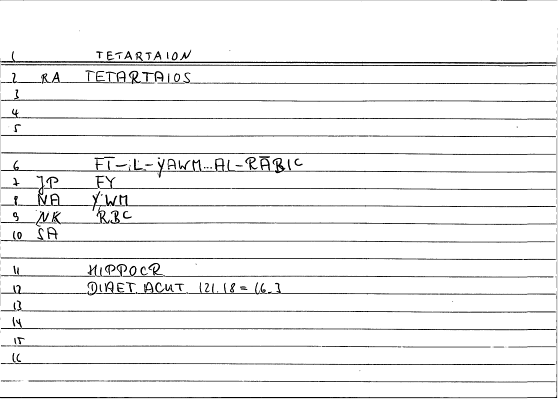 1 TETARTAION
2 RA TETARTAIOS
3
4
5
6 FĪ-L-YAWM...AL-RĀBIC
7 JP FY
8 NA YWM
9 NK RBC
10 SA
11 HIPPOCR
12 DIAET. ACUT. 121.18 = 16.3
13
14
15
16